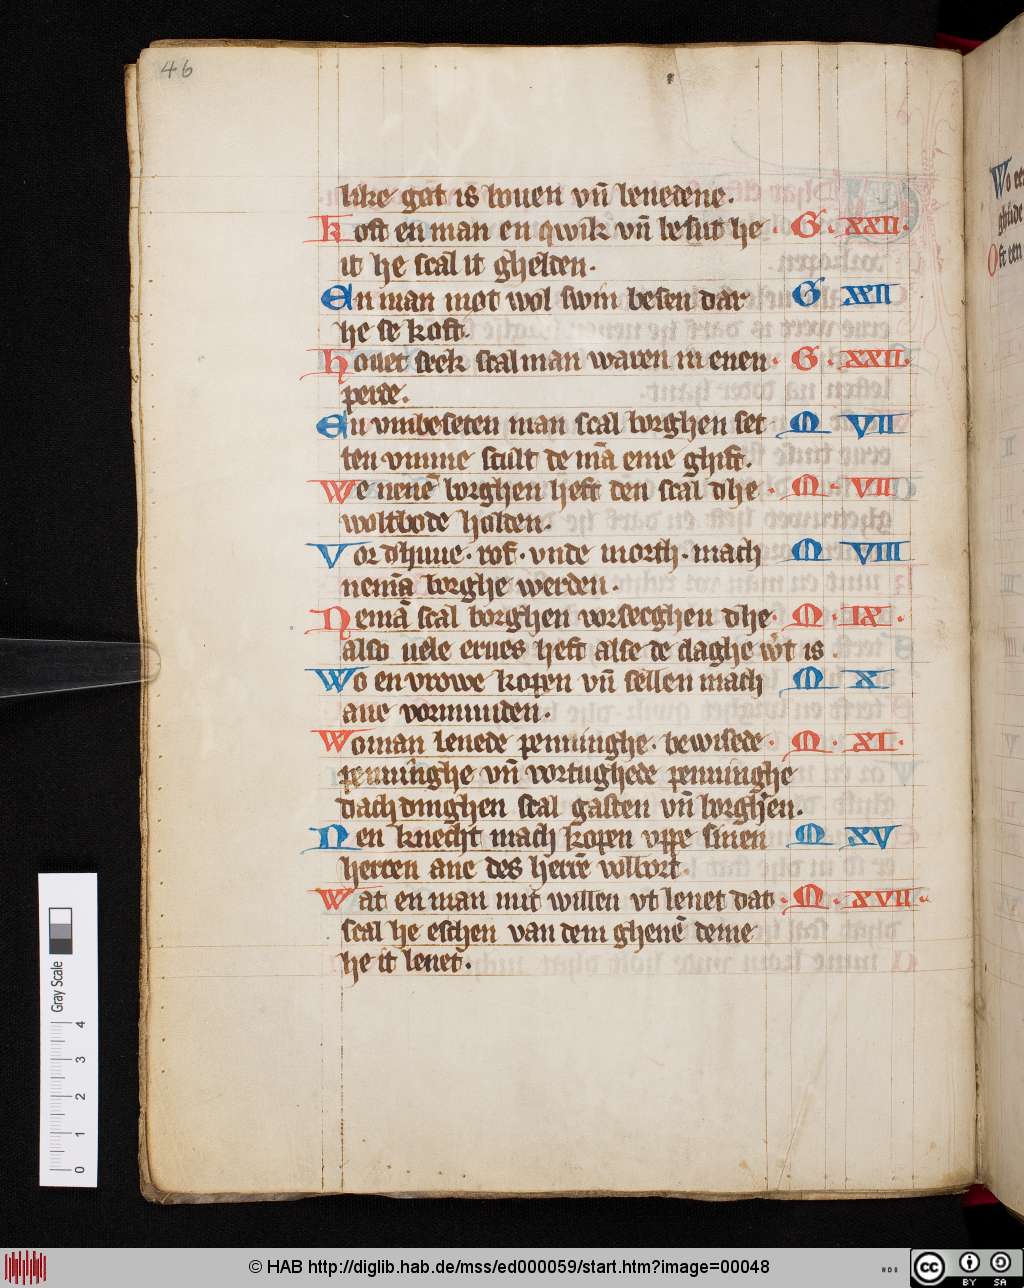 46
like got is bouen vn̄ benedene.
Koft en man en qwik vn̄ besut he · G · XXII ·
it he scal it ghelden.
En man mot wol swin besen dar G XXII
he se koft.
Houet seek scal man waren in enen · G · XXII ·
perde.
En vmbeseten man scal borghen set M VII
ten vmme scult de mā eme ghift.
We nenē borghen heft den scal dhe · M · VII
woltbode holden.
Vor dhuue · rof · vnde morth · mach M VIII
nemā borghe werden.
Nemā scal borghen vorsecghen dhe · M · IX ·
also uele erues heft alse de claghe w̄t is.
Wo en vrowe kopen vn̄ sellen mach M X
ane vormunden.
Wo man lenede penninghe · bewisede · M · XI ·
penninghe vn̄ vortughede penninghe
dach dinghen scal gasten vn̄ borghēn.
Nen knecht mach kopen vppe sinen M XV
herren ane des herrē vulbort.
Wat en man mit willen vt lenet dat · M · XVII ·
scal he eschen van dem ghenē deme
he it lenet.
Gray Scale
0 1 2 3 4
© HAB http://diglib.hab.de/mss/ed000059/start.htm?image=00048
cc BY SA